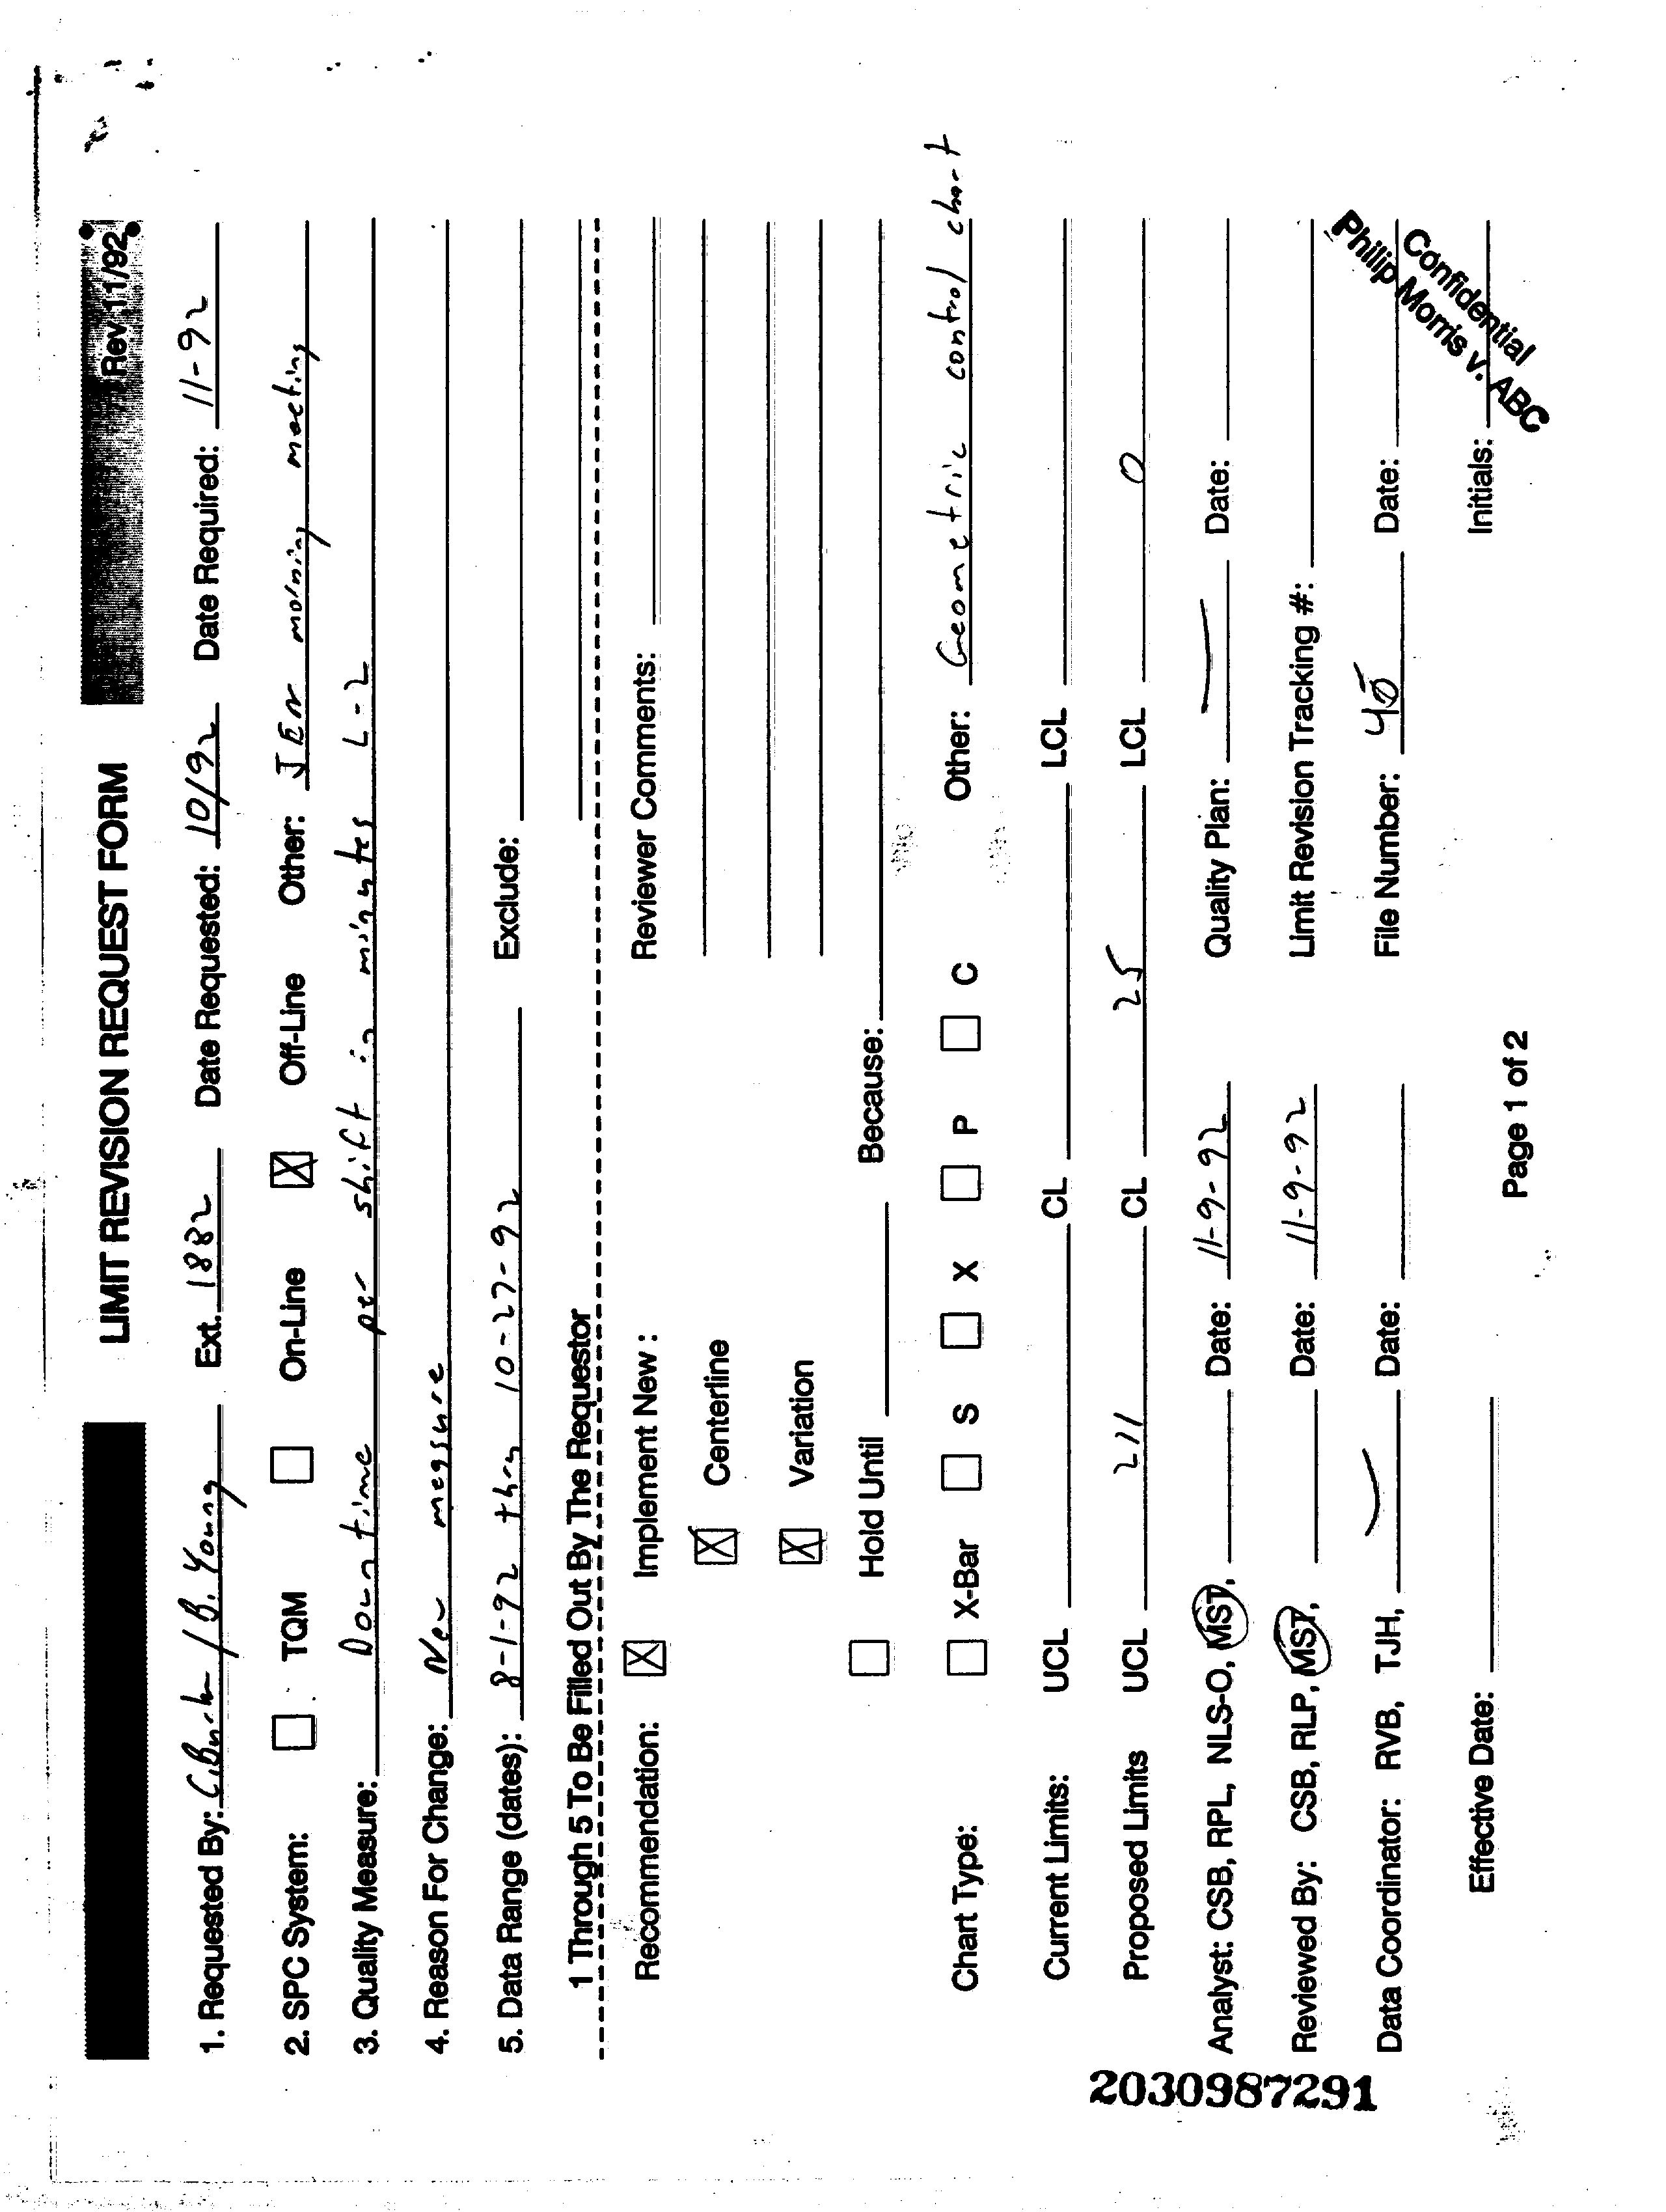 LIMIT REVISION REQUEST FORM Rev 11/92
1. Requested By: C. Burch / B. Young Ext. 1882 Date Requested: 10/92 Date Required: 11-92
2. SPC System: TQM On-Line Off-Line Other: JEN morning meeting
3. Quality Measure: Down time per shift in minutes L-2
4. Reason For Change: New measure
5. Data Range (dates): 8-1-92 thru 10-27-92 Exclude:
1 Through 5 To Be Filled Out By The Requestor
Recommendation: Implement New : Reviewer Comments:
Centerline
Variation
Hold Until Because:
Chart Type: X-Bar S X P C Other: Geometric control chart
Current Limits: UCL CL LCL
Proposed Limits UCL 211 CL 25 LCL 0
Analyst: CSB, RPL, NLS-O, MST, Date: 11-9-92 Quality Plan: Date:
Reviewed By: CSB, RLP, MST, Date: 11-9-92 Limit Revision Tracking #:
Data Coordinator: RVB, TJH, Date: File Number: Date:
Effective Date: Initials:
Page 1 of 2
Confidential
Philip Morris v. ABC
2030987291